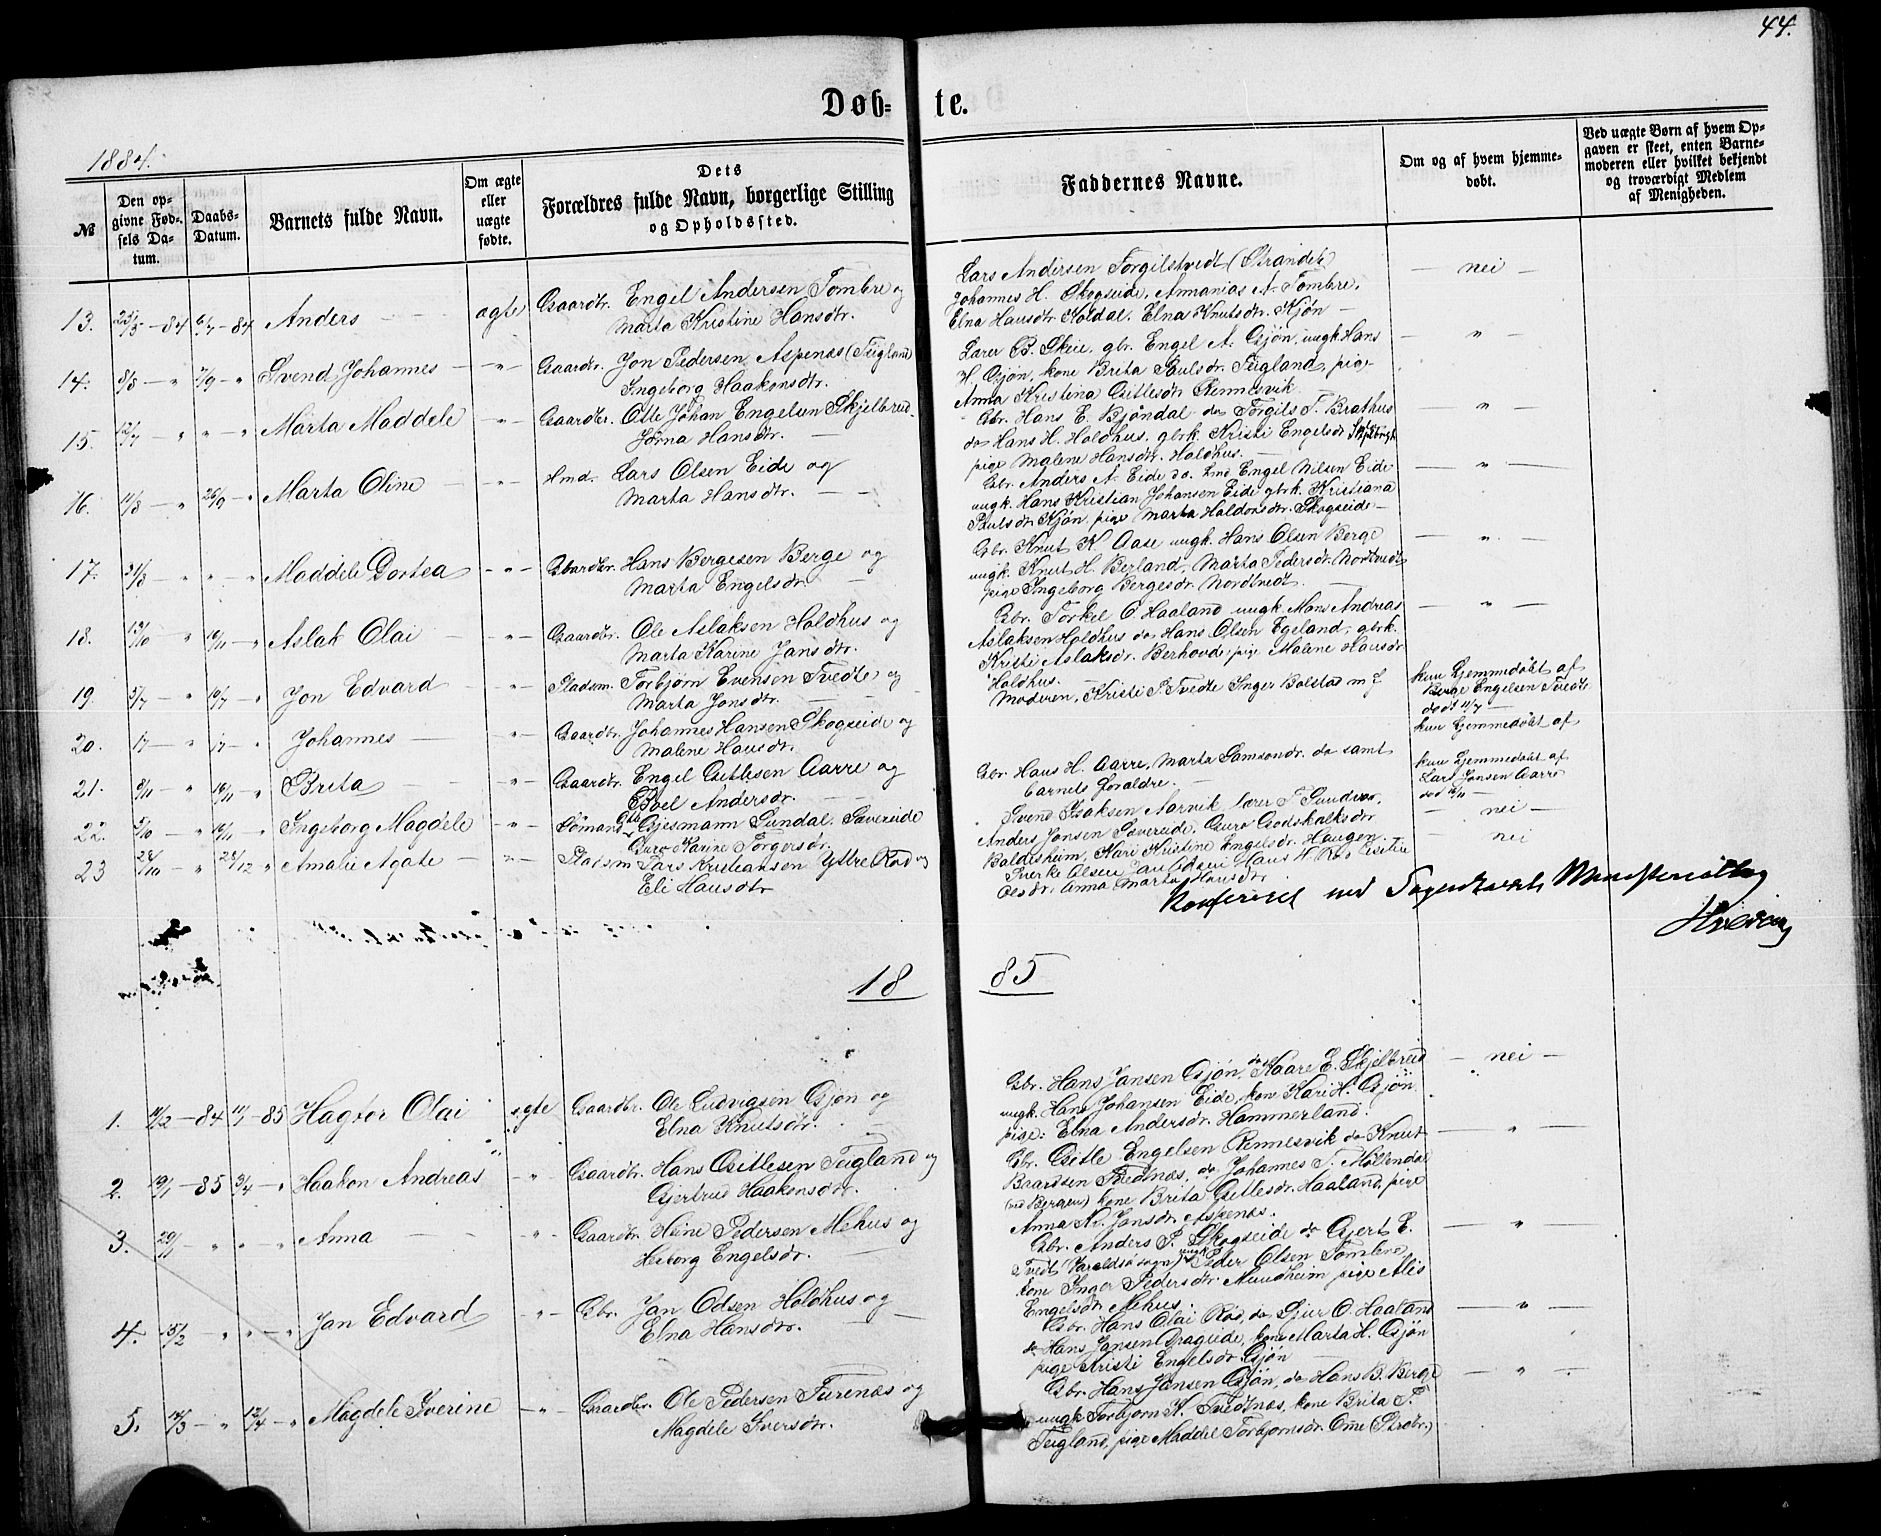 44.
Døb-te.
1884.
№
Den opgivne Fødsels Datum.
Daabs-Datum.
Barnets fulde Navn.
Om ægte eller uægte fødte.
Dets Forældres fulde Navn, borgerlige Stilling og Opholdssted.
Faddernes Navne.
Om og af hvem hjemmedøbt.
Ved uægte Børn af hvem Opgaven er skeet, enten Barnemoderen eller hvilket bekjendt og troværdigt Medlem af Menigheden.
13. 84 6/7 - 84 Anders ægte Gaardbr. Engel Andersen Tombre og
Marta Kristine Hansdtr.
Lars Andersen Torgilstvedt (Strandeb) — nei —
Johannes H. Skogseide, Annanias A. Tombre,
Elna Hansdtr Holdal. Elna Knutsdtr. Kjøn —
14. 3/8 — " 7/9 — " Svend Johannes — " — Gaardbr. Jon Pedersen Aspenæs (Teigland)
Ingeborg Haakonsdtr.
Lærer B. Skeie, gbr. Engel A. Gjøn, ungk. Hans — " —
H Gjøn, kone Brita Paulsdr. Teigland, pige
Anna Kristina Gitlesdtr Rennesvik
15. 12/7 — " " — " Marta Maddele — " — Gaardbr. Otte Johan Engelsen Skjelbreid
Jorna Hansdtr. —
Gbr. Hans E. Bjøndal do Torgils T. Brathus — " —
do Hans H. Holdhus, gbrk. Kristi Engelsdr
pige Malene Hansdtr. Holdhus. —
16. 11/8 — " 26/9 — " Marta Oline — " — Hmd. Lars Olsen Eide og
Marta Hansdtr. —
Gbr. Anders A. Eide do. Hmd Engel Nilsen Eide — " —
ungk. Hans Kristian Johansen Eide gbrk. Kristiana
Paulsdtr Kjøn, pige Marta Haldorsdtr. Skogseide —
17. 31/8 " " — " Maddele Dortea — " — Gaardbr. Hans Bergesen Berge og
Marta Engelsdr. —
Gbr. Knut K Aase ungk. Hans Olsen Berge — " —
ungk. Knut H. Berland, Marta Pedersdtr. Nordtvedt
pige Ingeborg Bergesdr. Nordtvedt. —
18. 13/10 " 16/11 — " Aslak Olai — " — Gaardbr. Ole Aslaksen Holdhus og
Marta Karine Jansdtr.
Gbr. Torkel O Haaland ungk. Mons Andreas — " —
Aslaksen Holdhus do Hans Olsen Egeland, gbrk.
Kristi Aslaksdr. Berhovde, pige Malene Hansdr
Holdhus. —
19. 5/7 — " 10/7 — " Jon Edvard — " — Pladsm. Torbjørn Evensen Tvedte, og
Marta Jonsdtr. —
Moderen, Kristi P. Tvedte Inger Bolstad m f
kun hjemmedøbt af
Berge Engelsen Tvedte
død 11/7 —
20. " — " Johannes — " — Gaardbr. Johannes Hansen Skogseide og
Malene Hansdtr.
kun hjemmedøbt af
21. 9/11 — " 16/11 " Brita — " — Gaardbr. Engel Gitlesen Aarre og
Andersdr. —
Gbr. Hans H. Aarre, Marta Samsondr. do samt
barnets forældre. —
kun hjemmedøbt af
Lars Jansen Aarre
22. 5/10 — " 16/11 " Ingeborg Magdele — " — Sømand Gjesmann Sundal. Sævereide
Guro Karine Torgersdr.
Svend Isaksen Aarvik Lærer T. Gundvor, — nei —
Anders Jonsen Sævereide, Guro Godskalksdtr
Baldersheim, Kari Kristine Engelsdr. Haugen.
23 28/10 — " 28/12 " Amalie Agate — " — Pladsm Lars Kristiansen Ytre Rød og
Eli Hansdtr
— nei
Olsdr. Anna Marta Hansdtr
Konfereret med Sogneprestens Ministerialbog
Hvoslef
18 85
1. 11/2 — 84 11/1 — 85 Hagtor Olai ægte Gaardbr. Ole Ludvigsen Gjøn og
Elna Knutsdtr. —
Gbr. Hans Jansen Gjøn, do Kaare E. Skjelbreid — nei —
ungk. Hans Johansen Eide, kon Kari H. Gjøn
pige: Elna Andersdr. Hammerland.
2. 19/1 — 85 3/4 — " Haakon Andreas — " Gaardbr. Hans Gitlesen Teigland og
Gjertrud Haakonsdtr.
Gbr. Gitle Engelsen Rennesvik do Knut — " —
Baardsen Tvedtnæs, do Johannes T. Møllendal
(ved Bergen) kone Brita Gitlesdr. Haaland, pige
Anna K. Jonsdr. Aspenæs.
3. 29/1 " " " Anna — " — Gaardbr. Heine Pedersen Mehus og
Heborg Engelsdr. —
Gbr. Anders P. Skogseide do Gjert E. — " —
Tvedt Varaldsø sogn) ungk Peder Olsen Tombre,
kone Inger Pedersdtr. Mundheim pige Alis
Engelsdtr Mehus.
4. 15/2 — " " — " Jan Edvard — " — Gbr. Jan Odsen Holdhus og
Elna Hansdtr.
Gbr. Hans Olai Rød, do Sjur O. Haaland — " —
do Hans Jansen Drageide, kone Marta H. Gjøn
pige Kristi Engelsdr Gjøn —
5. 14/3 — " 12/4 — " Magdele Iverine — " — Gaardbr. Ole Pedersen Furenæs og
Magdele Iversdtr.
Gbr. Hans Jansen Gjøn, do Hans B. Berge — " —
ungk Torbjørn K. Tvedtnæs, kone Brita T.
Teigland, pige Maddel Torbjørnsdr. Ome (Strbr.)